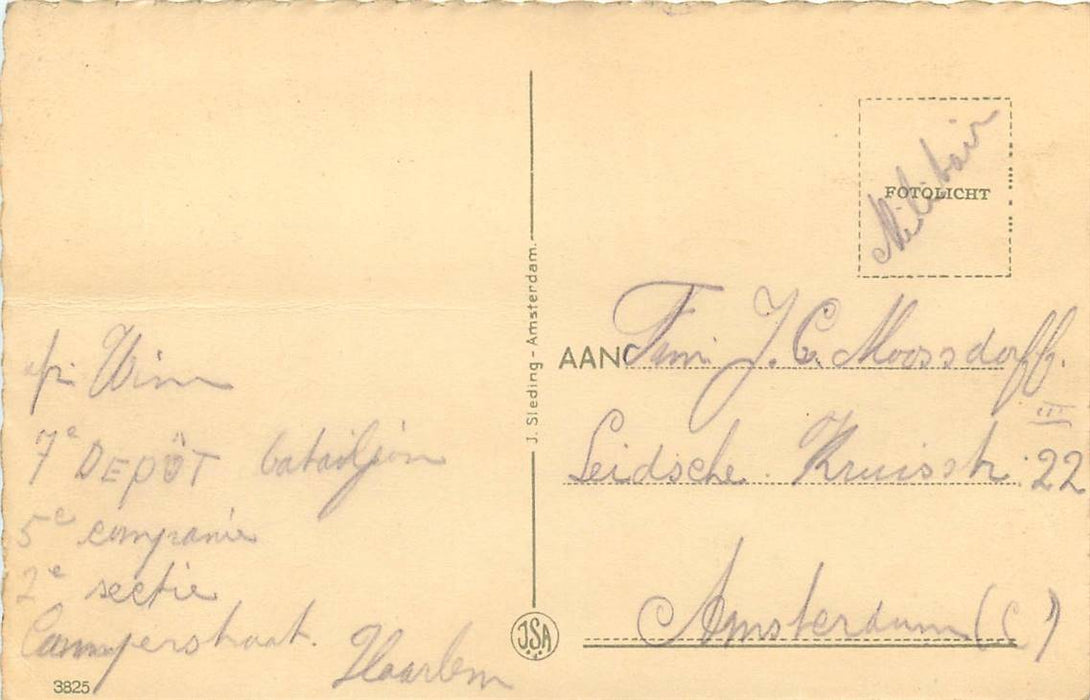 Wim
7e DEPÔT bataljon
5e companie
2e sectie
Camperstraat. Haarlem
3825
J. Sleding - Amsterdam.
JSA
Militair
FOTOLICHT
AAN Fam. J. C. Moossdorff.
Leidsche Kruisstr. 22 III
Amsterdam (C)